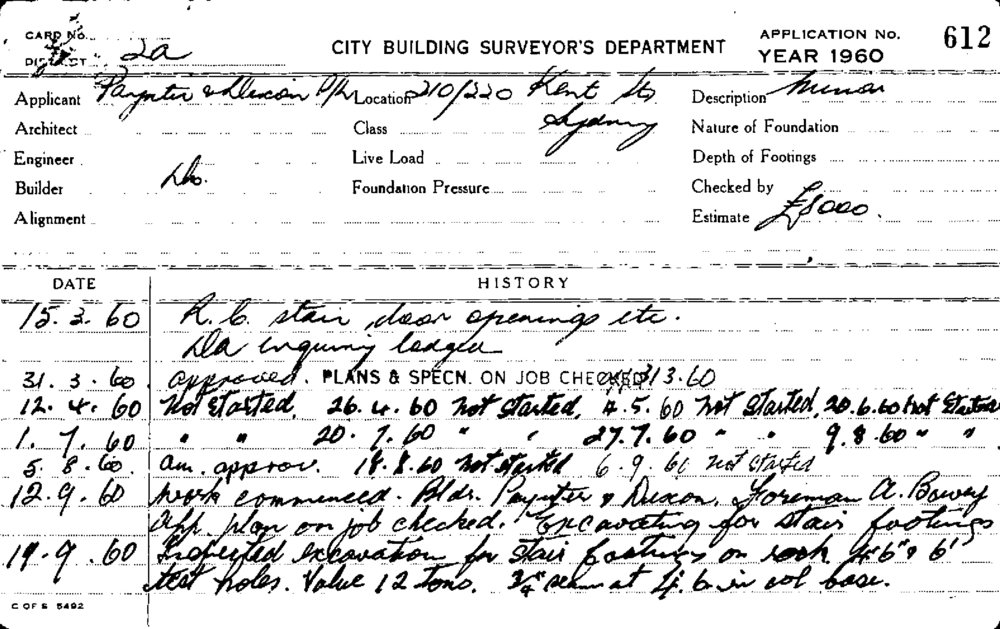 CARD No.
DISTRICT 2a
CITY BUILDING SURVEYOR'S DEPARTMENT
APPLICATION No. 612
YEAR 1960
Applicant Paynter & Dixon P/L Location 210/220 Kent St Sydney Description Minor
Architect Class Nature of Foundation
Engineer Live Load Depth of Footings
Builder Do. Foundation Pressure Checked by
Alignment Estimate £8000.
DATE HISTORY
15.3.60 R.C. stair, door openings etc.
Da enquiry lodged
31.3.60. approved. PLANS & SPECN. ON JOB CHECKED 31 3.60
12.4.60 Not Started, 26.4.60 Not Started, 4.5.60 Not Started, 20.6.60 Not Started
1.7.60 " " 20.7.60 " " 27.7.60 " " 9.8.60 " "
5.8.60. am. approv. 18.8.60 Not Started 6.9.60 Not Started
12.9.60 Work commenced. Bldr. Paynter & Dixon, Foreman A. Bowey
App. plan on job checked. Excavating for stair footings
19.9.60 Inspected excavation for stair footings on rock. 4'6" & 6'
test holes. Value 12 tons. 3/4" seam at 4'.6 in col base.
C OF S 5492